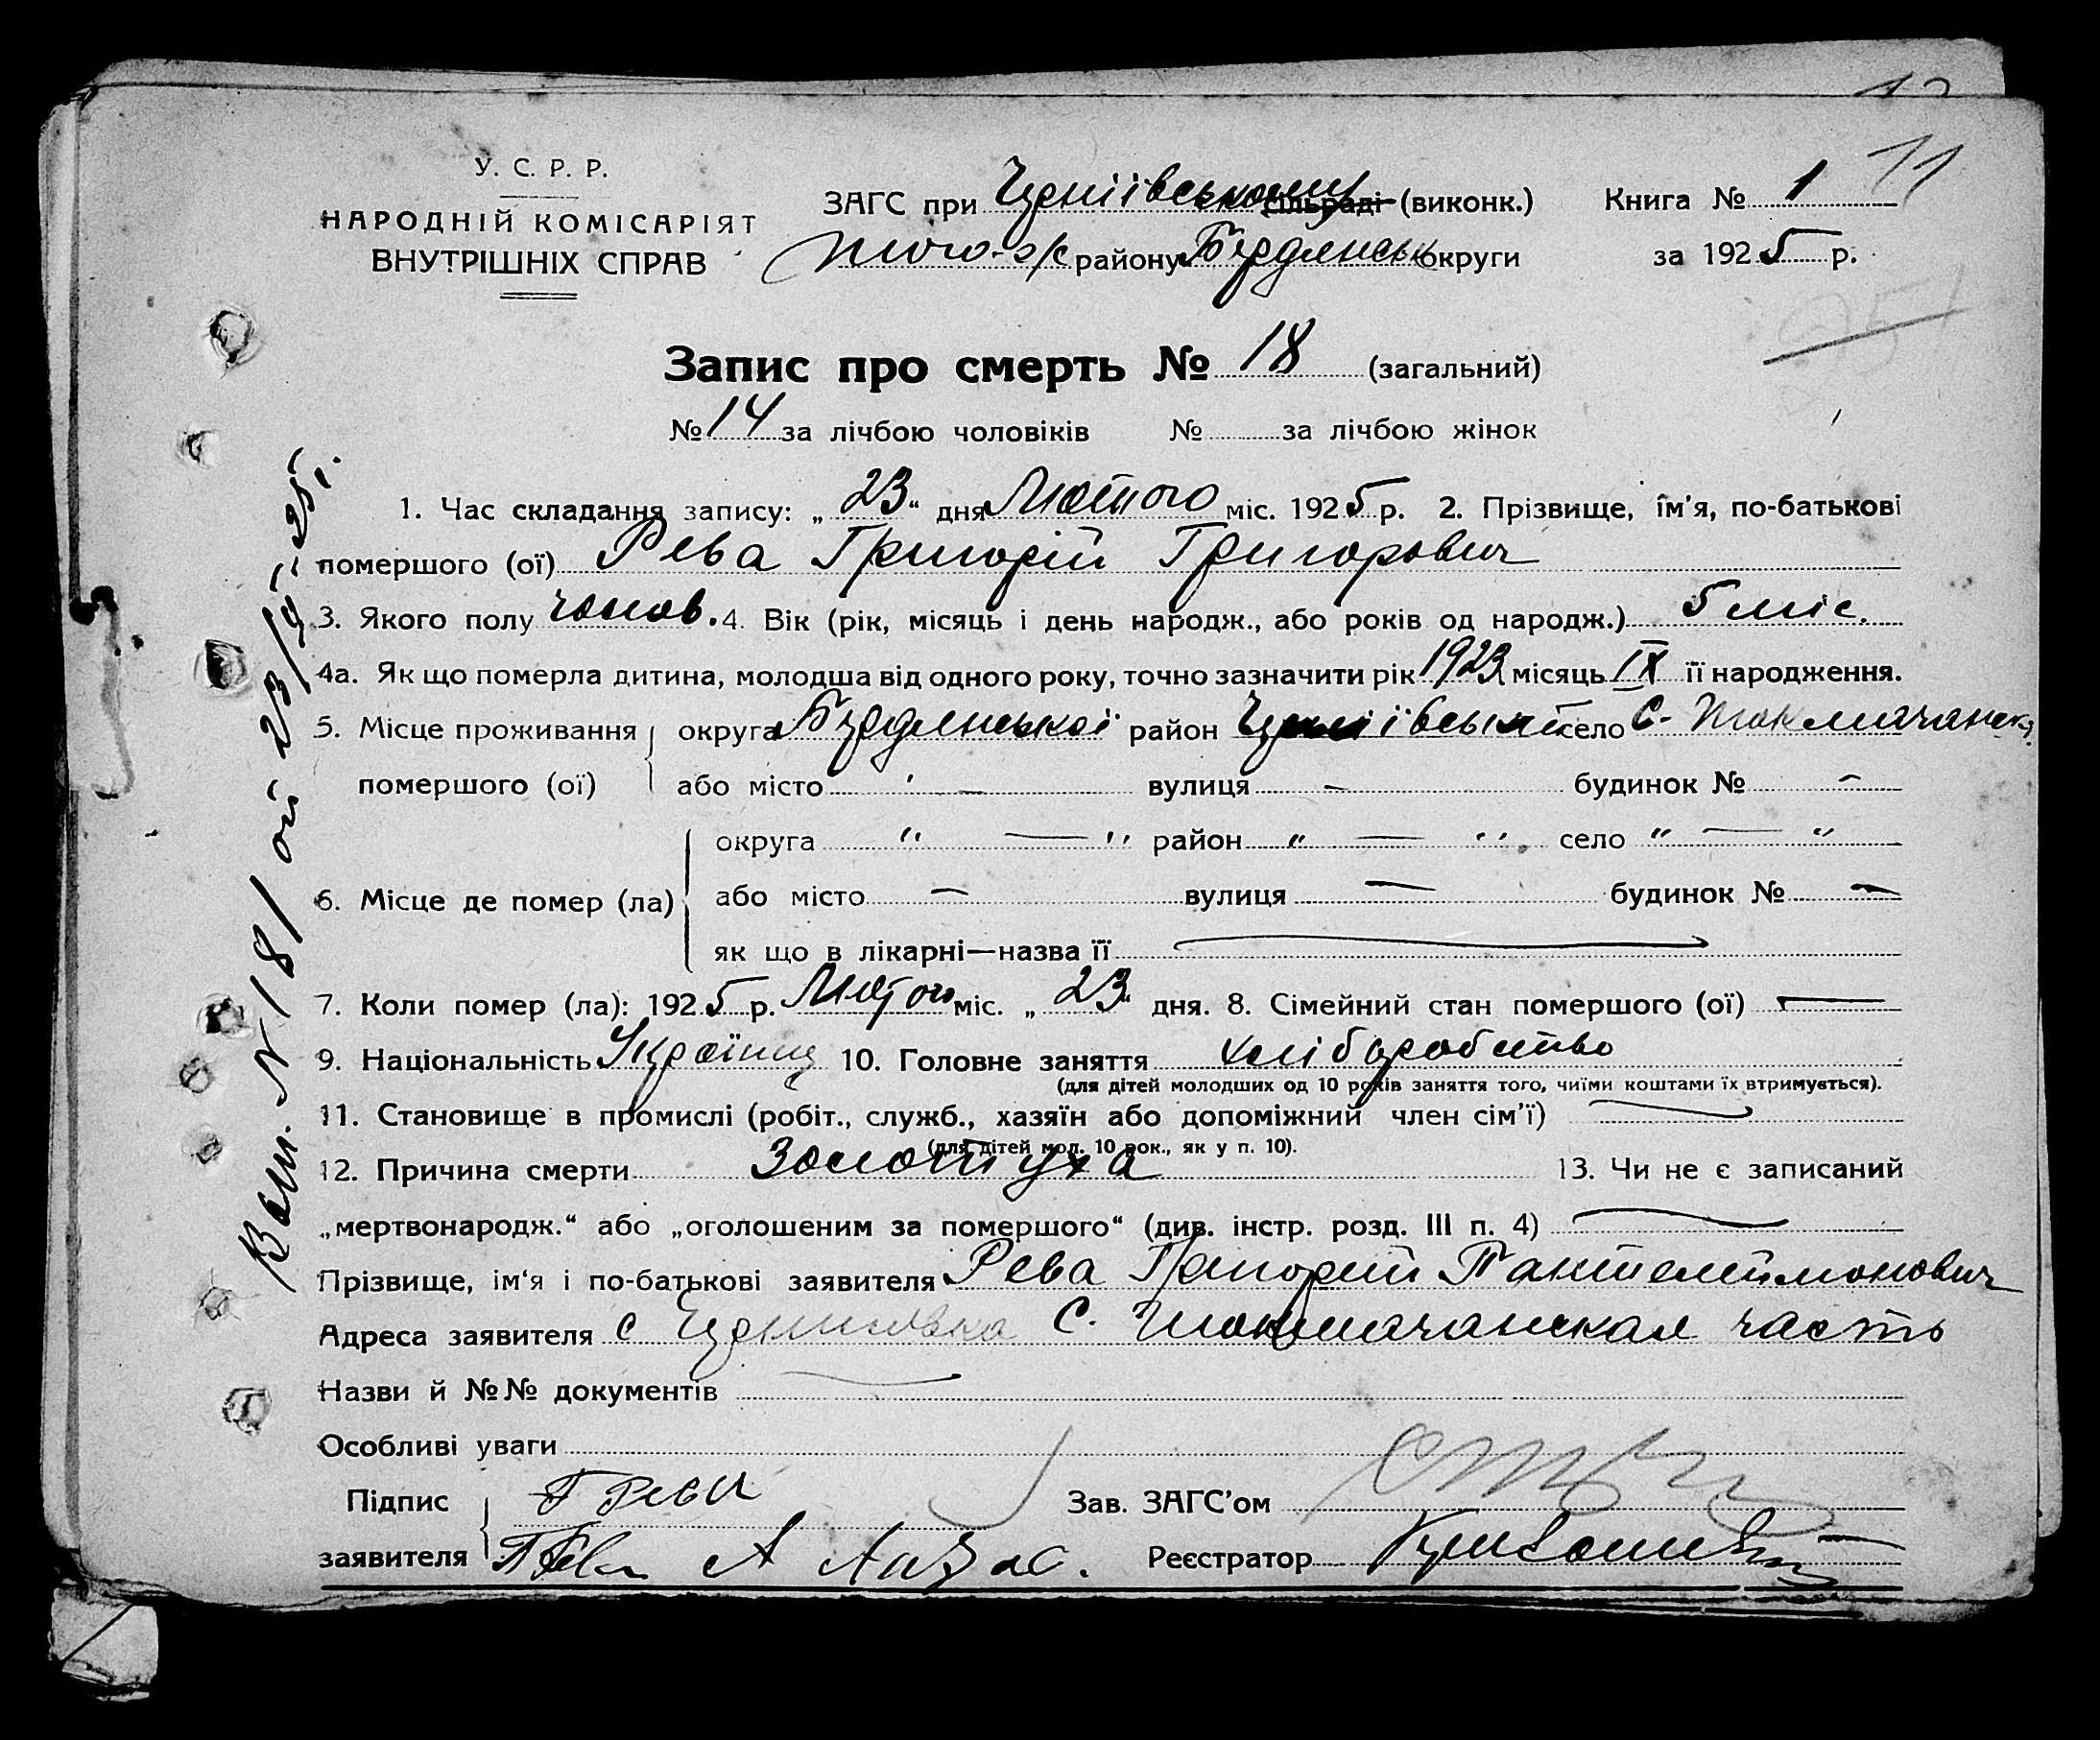 11
У. С. Р. Р.
НАРОДНІЙ КОМІСАРІЯТ
ВНУТРІШНІХ СПРАВ
ЗАГС при сільраді (виконк.)
того-ж району Бердянськ округи
Книга № 1
за 1925 р.
Запис про смерть № 18 (загальний)
№ 14 за лічбою чоловіків № за лічбою жінок
1. Час складання запису: „23“ дня Лютого міс. 1925 р. 2. Прізвище, ім'я, по-батькові
помершого (ої) Рева Григорій Григорович
3. Якого полу чолов. 4. Вік (рік, місяць і день народж., або років од народж.) 5 міс.
4а. Як що померла дитина, молодша від одного року, точно зазначити рік 1923 місяць IX її народження.
5. Місце проживання округа Бердянської район село С.-Токмачанск
помершого (ої) або місто — вулиця — будинок № —
округа " — " район " — " село " — "
6. Місце де помер (ла) або місто — вулиця — будинок № —
як що в лікарні—назва її —
7. Коли помер (ла): 1925 р. Лютого міс. „23“ дня. 8. Сімейний стан помершого (ої) —
9. Національність Українець 10. Головне заняття хліборобство
(для дітей молодших од 10 років заняття того, чиїми коштами їх втримується).
11. Становище в промислі (робіт., служб., хазяїн або допоміжний член сім'ї) —
(для дітей мол. 10 рок., як у п. 10).
12. Причина смерти Золотуха 13. Чи не є записаний
„мертвонародж.“ або „оголошеним за помершого“ (див. інстр. розд. III п. 4) —
Прізвище, ім'я і по-батькові заявителя Рева Григорий Пантелеймонович
Адреса заявителя с С. Токмачанская часть
Назви й №№ документів —
Особливі уваги
Підпис Г Рева Зав. ЗАГС'ом
заявителя Реєстратор